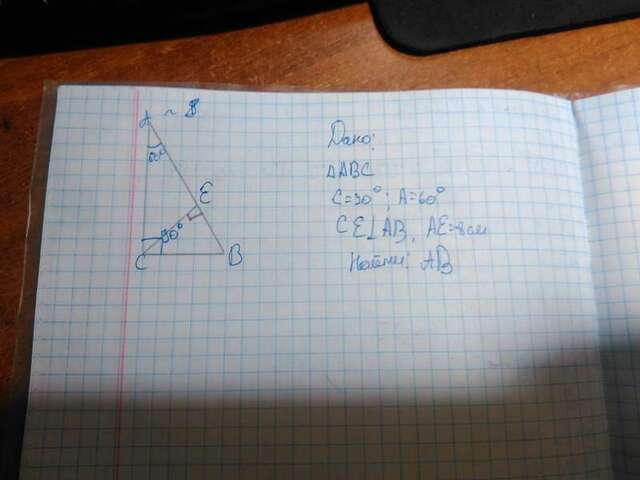 A
60°
E
90°
C
B
Дано:
△ABC
C=90°; A=60°
CE⊥AB, AE=8см
Найти: AB